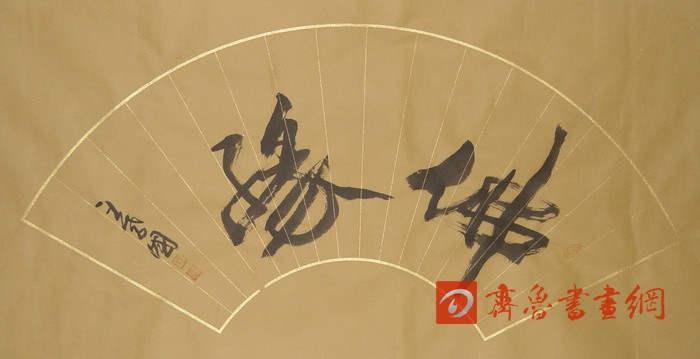 佛缘
齊魯書畫網